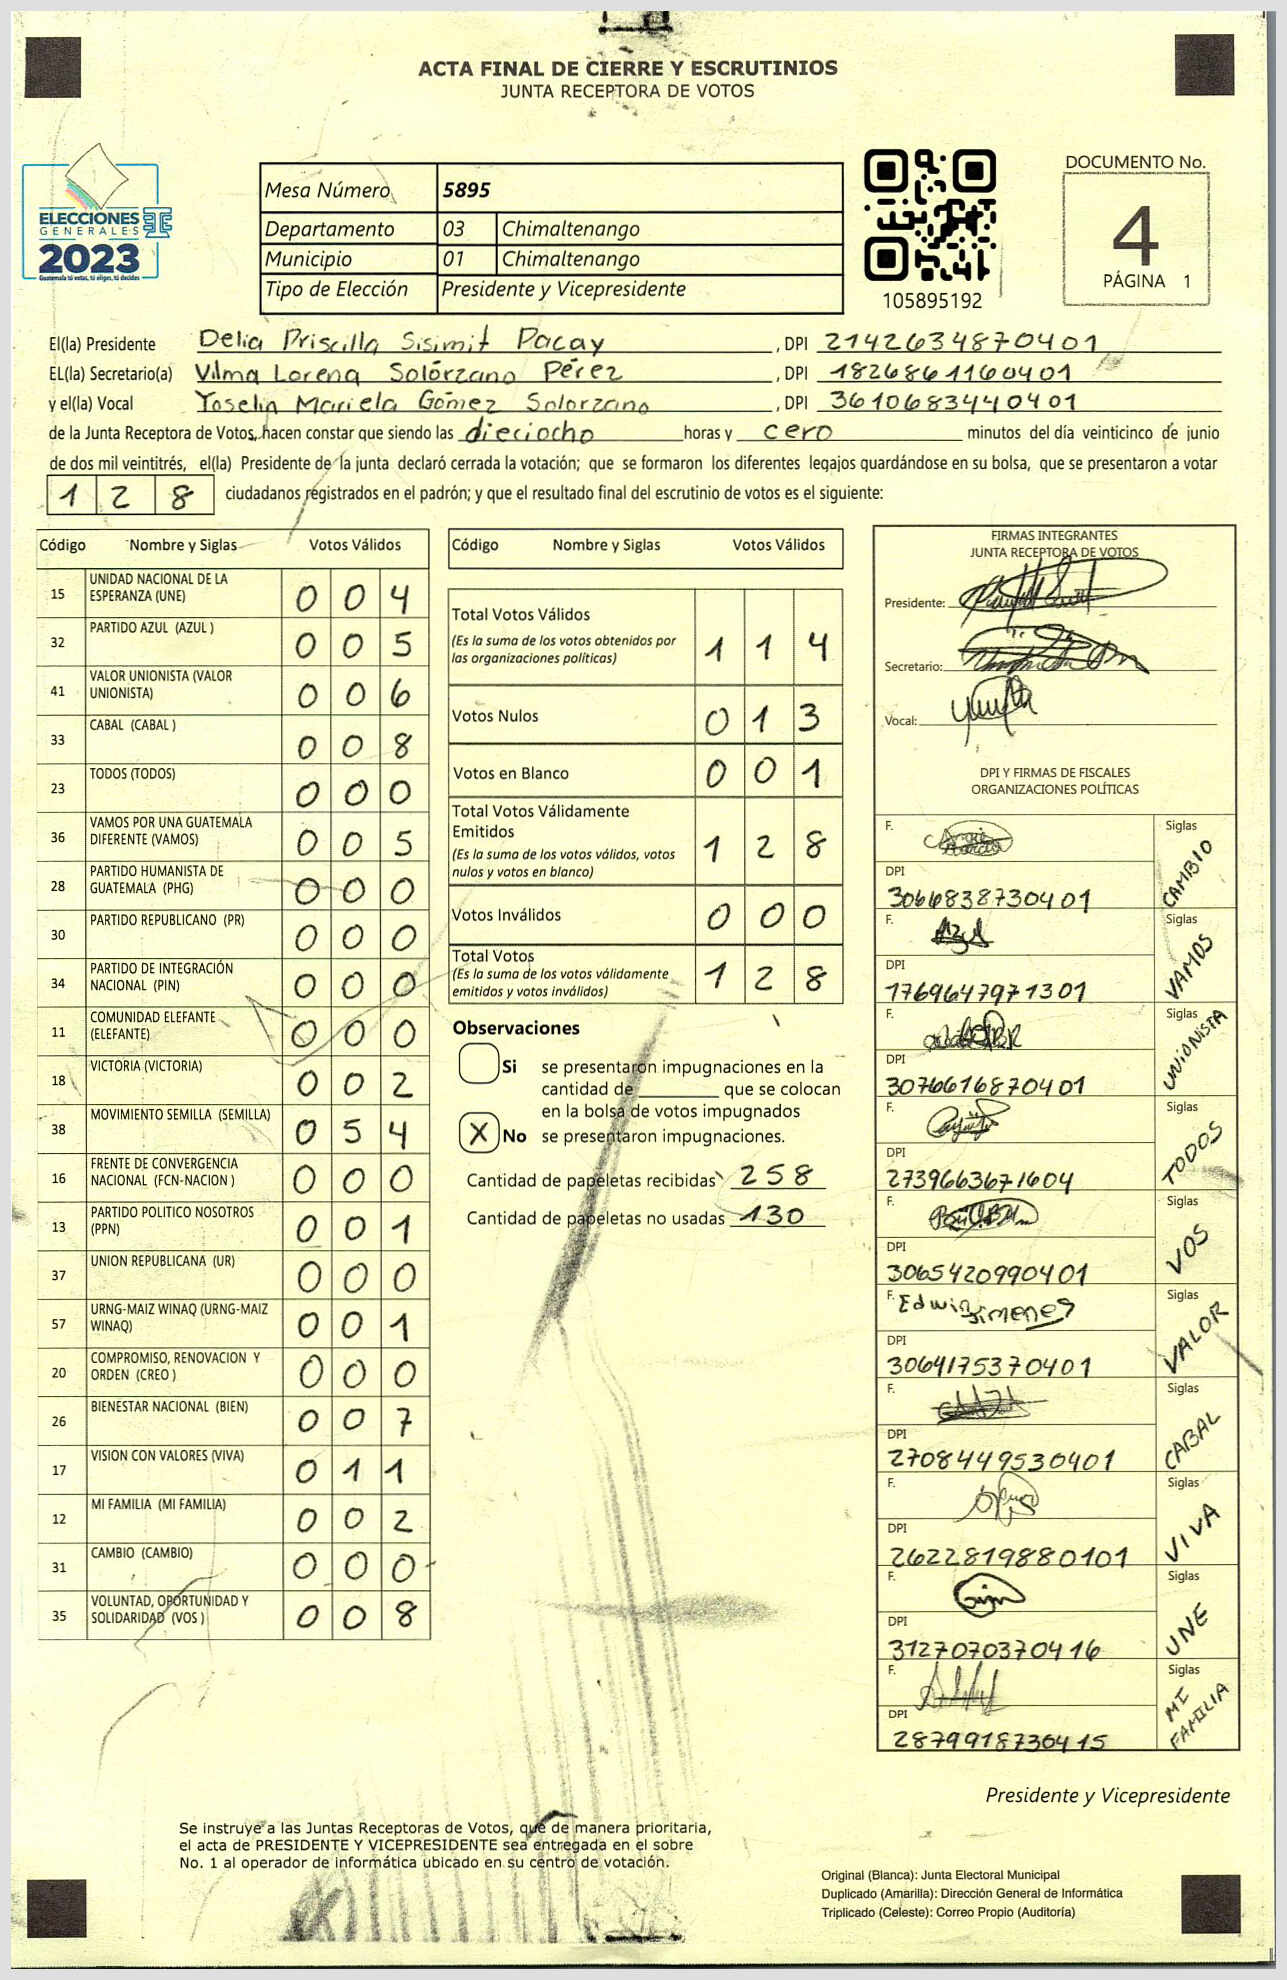 ACTA FINAL DE CIERRE Y ESCRUTINIOS
JUNTA RECEPTORA DE VOTOS
ELECCIONES
GENERALES
2023
Guatemala tú votas, tú eliges, tú decides
Mesa Número 5895
Departamento 03 Chimaltenango
Municipio 01 Chimaltenango
Tipo de Elección Presidente y Vicepresidente
105895192
DOCUMENTO No.
4
PÁGINA 1
El(la) Presidente Delia Priscilla Sisimit Pacay , DPI 2142634870401
EL(la) Secretario(a) Vilma Lorena Solórzano Pérez , DPI 1826861160401
y el(la) Vocal Yoselin Mariela Gómez Solorzano , DPI 3610683440401
de la Junta Receptora de Votos, hacen constar que siendo las dieciocho horas y cero minutos del día veinticinco de junio
de dos mil veintitrés, el(la) Presidente de la junta declaró cerrada la votación; que se formaron los diferentes legajos guardándose en su bolsa, que se presentaron a votar
128 ciudadanos registrados en el padrón; y que el resultado final del escrutinio de votos es el siguiente:
Código Nombre y Siglas Votos Válidos
15 UNIDAD NACIONAL DE LA ESPERANZA (UNE) 0 0 4
32 PARTIDO AZUL (AZUL ) 0 0 5
41 VALOR UNIONISTA (VALOR UNIONISTA) 0 0 6
33 CABAL (CABAL ) 0 0 8
23 TODOS (TODOS) 0 0 0
36 VAMOS POR UNA GUATEMALA DIFERENTE (VAMOS) 0 0 5
28 PARTIDO HUMANISTA DE GUATEMALA (PHG) 0 0 0
30 PARTIDO REPUBLICANO (PR) 0 0 0
34 PARTIDO DE INTEGRACIÓN NACIONAL (PIN) 0 0 0
11 COMUNIDAD ELEFANTE (ELEFANTE) 0 0 0
18 VICTORIA (VICTORIA) 0 0 2
38 MOVIMIENTO SEMILLA (SEMILLA) 0 5 4
16 FRENTE DE CONVERGENCIA NACIONAL (FCN-NACION ) 0 0 0
13 PARTIDO POLITICO NOSOTROS (PPN) 0 0 1
37 UNION REPUBLICANA (UR) 0 0 0
57 URNG-MAIZ WINAQ (URNG-MAIZ WINAQ) 0 0 1
20 COMPROMISO, RENOVACION Y ORDEN (CREO ) 0 0 0
26 BIENESTAR NACIONAL (BIEN) 0 0 7
17 VISION CON VALORES (VIVA) 0 1 1
12 MI FAMILIA (MI FAMILIA) 0 0 2
31 CAMBIO (CAMBIO) 0 0 0
35 VOLUNTAD, OPORTUNIDAD Y SOLIDARIDAD (VOS ) 0 0 8
Código Nombre y Siglas Votos Válidos
Total Votos Válidos 1 1 4
(Es la suma de los votos obtenidos por
las organizaciones políticas)
Votos Nulos 0 1 3
Votos en Blanco 0 0 1
Total Votos Válidamente
Emitidos 1 2 8
(Es la suma de los votos válidos, votos
nulos y votos en blanco)
Votos Inválidos 0 0 0
Total Votos 1 2 8
(Es la suma de los votos válidamente
emitidos y votos inválidos)
Observaciones
Si se presentaron impugnaciones en la
cantidad de ________ que se colocan
en la bolsa de votos impugnados
X No se presentaron impugnaciones.
Cantidad de papeletas recibidas 258
Cantidad de papeletas no usadas 130
FIRMAS INTEGRANTES
JUNTA RECEPTORA DE VOTOS
Presidente:
Secretario:
Vocal:
DPI Y FIRMAS DE FISCALES
ORGANIZACIONES POLÍTICAS
F. Siglas CAMBIO
DPI
3066838730401
F. Siglas VAMOS
DPI
1769647971301
F. Siglas UNIONISTA
DPI
3076616870401
F. Siglas TODOS
DPI
2739663671604
F. Siglas VOS
DPI
3065420990401
F. Edwin Jimenes Siglas VALOR
DPI
3064175370401
F. Siglas CABAL
DPI
2708449530401
F. Siglas VIVA
DPI
2622819880101
F. Siglas UNE
DPI
3127070370416
F. Siglas MI FAMILIA
DPI
2879918730415
Presidente y Vicepresidente
Se instruye a las Juntas Receptoras de Votos, que de manera prioritaria,
el acta de PRESIDENTE Y VICEPRESIDENTE sea entregada en el sobre
No. 1 al operador de informática ubicado en su centro de votación.
Original (Blanca): Junta Electoral Municipal
Duplicado (Amarilla): Dirección General de Informática
Triplicado (Celeste): Correo Propio (Auditoría)